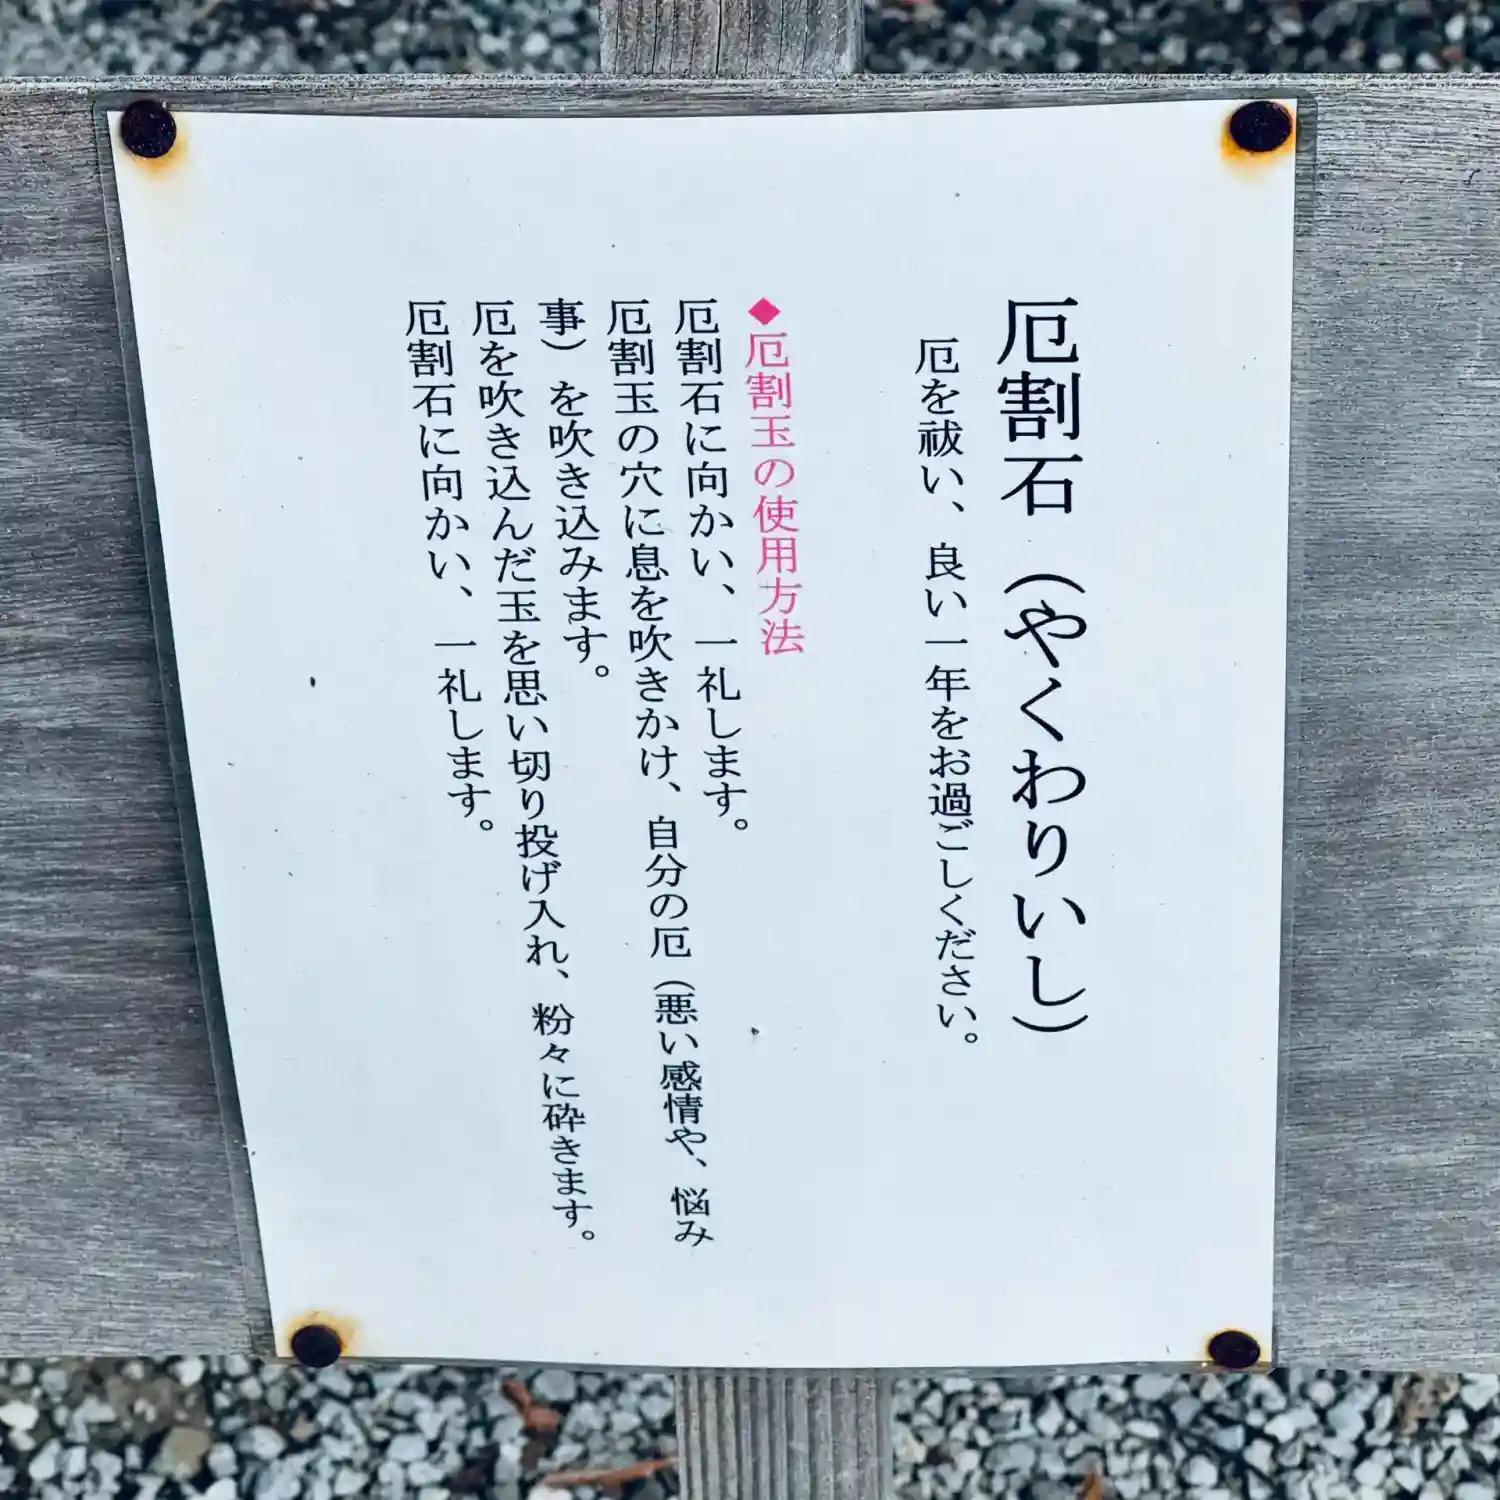 厄割石（やくわりいし）
厄を祓い、良い一年をお過ごしください。
◆厄割玉の使用方法
厄割石に向かい、一礼します。
厄割玉の穴に息を吹きかけ、自分の厄（悪い感情や、悩み
事）を吹き込みます。
厄を吹き込んだ玉を思い切り投げ入れ、粉々に砕きます。
厄割石に向かい、一礼します。